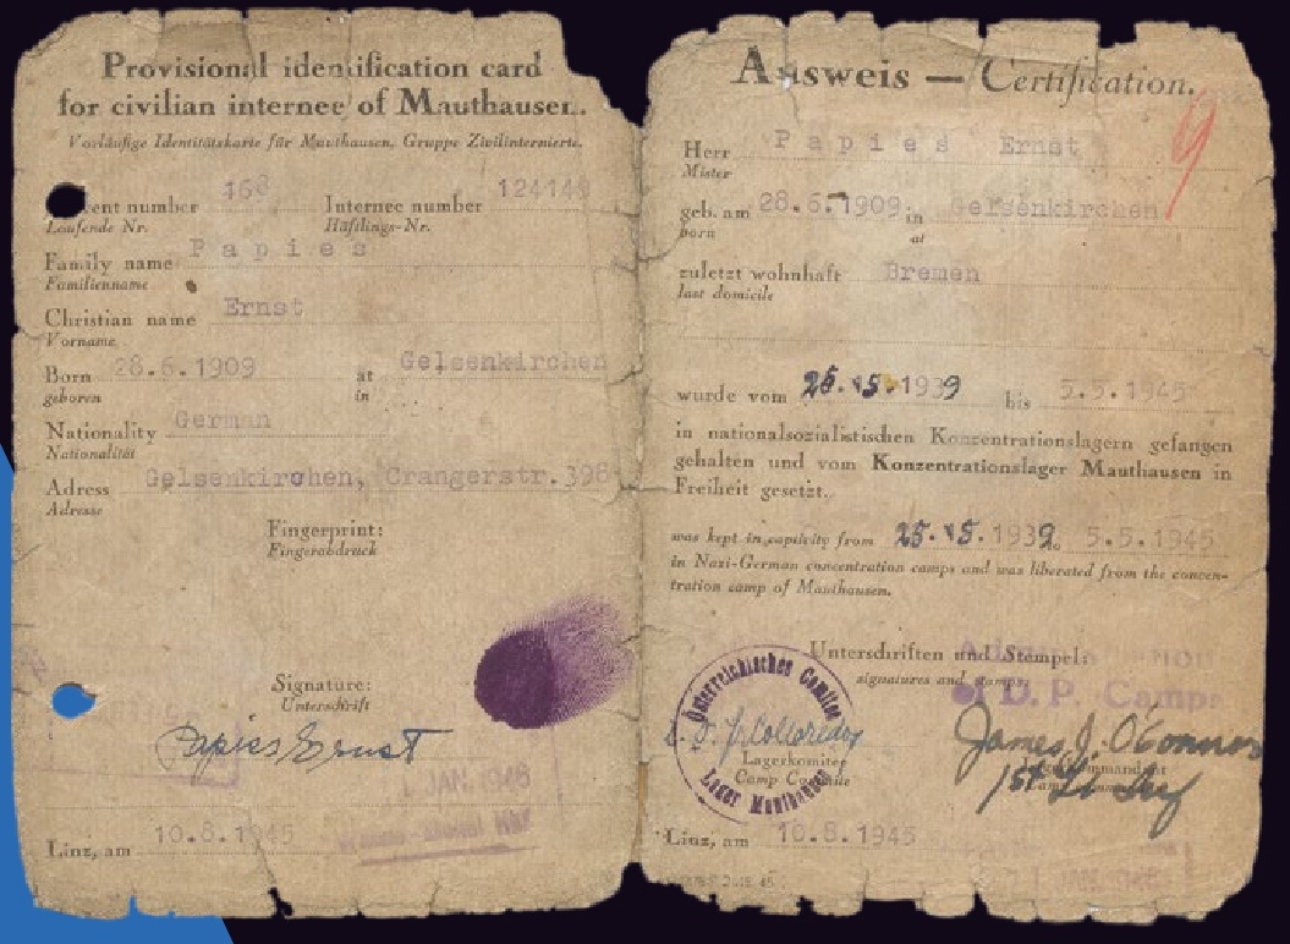 Provisional identification card
for civilian internee of Mauthausen.
Vorläufige Identitätskarte für Mauthausen, Gruppe Zivilinternierte.
number 168 Internee number 12414
Laufende Nr. Häftlings-Nr.
Family name Papies
Familienname
Christian name Ernst
Vorname
Born 28.6.1909 at Gelsenkirchen
geboren in
Nationality German
Nationalität
Adress Gelsenkirchen, Crangerstr. 398
Adresse
Fingerprint:
Fingerabdruck
Signature:
Unterschrift
Papies Ernst
JAN. 1946
Linz, am 10.8.1945
Ausweis — Certification.
9
Herr Papies Ernst
Mister
geb. am 28.6.1909 in Gelsenkirchen
born at
zuletzt wohnhaft Bremen
last domicile
wurde vom 25.5.1939 bis 5.5.1945
in nationalsozialistischen Konzentrationslagern gefangen
gehalten und vom Konzentrationslager Mauthausen in
Freiheit gesetzt.
was kept in captivity from 25.5.1939 to 5.5.1945
in Nazi-German concentration camps and was liberated from the concen-
tration camp of Mauthausen.
Unterschriften und Stempel:
signatures and stamps
D.P. Camps
Österreichisches Comitee
Colloredo
Lagerkomitee
Camp Comitee
Lager Mauthausen
James J. O'Connor
1st Lt Inf
Linz, am 10.8.1945
JAN. 1946